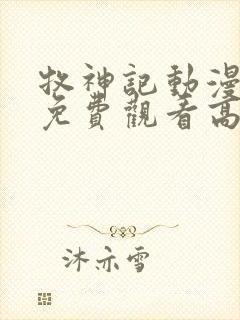 牧神記動漫
免費觀看高
沐亦雪